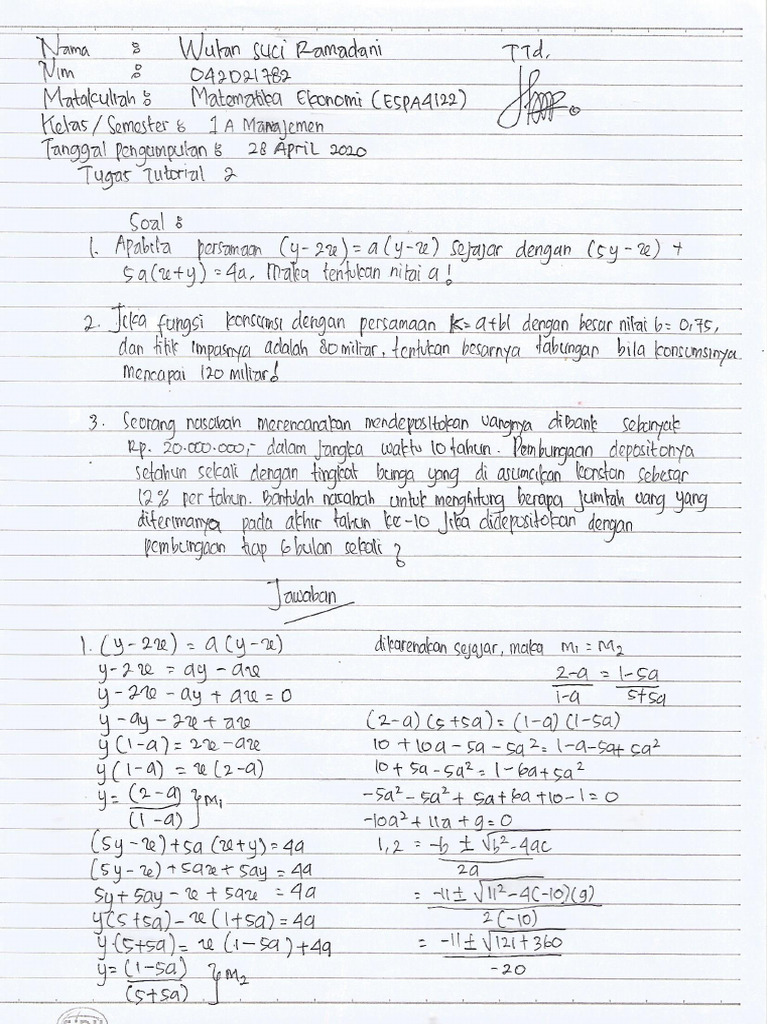 Nama : Wulan Suci Ramadani TTd.
Nim : 042021782
Matakuliah : Matematika Ekonomi (ESPA4122)
Kelas/Semester : 1 A Manajemen
Tanggal Pengumpulan : 28 April 2020
Tugas Tutorial 2
Soal :
1. Apabila persamaan (y-2x) = a(y-x) sejajar dengan (5y-x) +
5a(x+y) = 4a. Maka tentukan nilai a!
2. Jika fungsi konsumsi dengan persamaan K = a+bI dengan besar nilai b = 0,75,
dan titik impasnya adalah 80 miliar, tentukan besarnya tabungan bila konsumsinya
mencapai 120 miliar!
3. Seorang nasabah merencanakan mendepositokan uangnya dibank sebanyak
Rp. 20.000.000,- dalam jangka waktu 10 tahun. Pembungaan depositonya
setahun sekali dengan tingkat bunga yang di asumsikan konstan sebesar
12% per tahun. Bantulah nasabah untuk menghitung berapa jumlah uang yang
diterimanya pada akhir tahun ke-10 jika didepositokan dengan
pembungaan tiap 6 bulan sekali?
Jawaban
1. (y-2x) = a(y-x)
y-2x = ay-ax
y-2x-ay+ax = 0
y-ay-2x+ax
y(1-a) = 2x-ax
y(1-a) = x(2-a)
y = (2-a)/(1-a) } M1
(5y-x)+5a(x+y) = 4a
(5y-x)+5ax+5ay = 4a
5y+5ay-x+5ax = 4a
y(5+5a)-x(1+5a) = 4a
y(5+5a) = x(1-5a)+4a
y = (1-5a)/(5+5a) } M2
dikarenakan sejajar, maka M1 = M2
2-a/1-a = 1-5a/5+5a
(2-a)(5+5a) = (1-a)(1-5a)
10+10a-5a-5a² = 1-a-5a+5a²
10+5a-5a² = 1-6a+5a²
-5a²-5a²+5a+6a+10-1 = 0
-10a²+11a+9 = 0
1,2 = -b ± √b²-4ac / 2a
= -11 ± √11²-4(-10)(9) / 2(-10)
= -11 ± √121+360 / -20